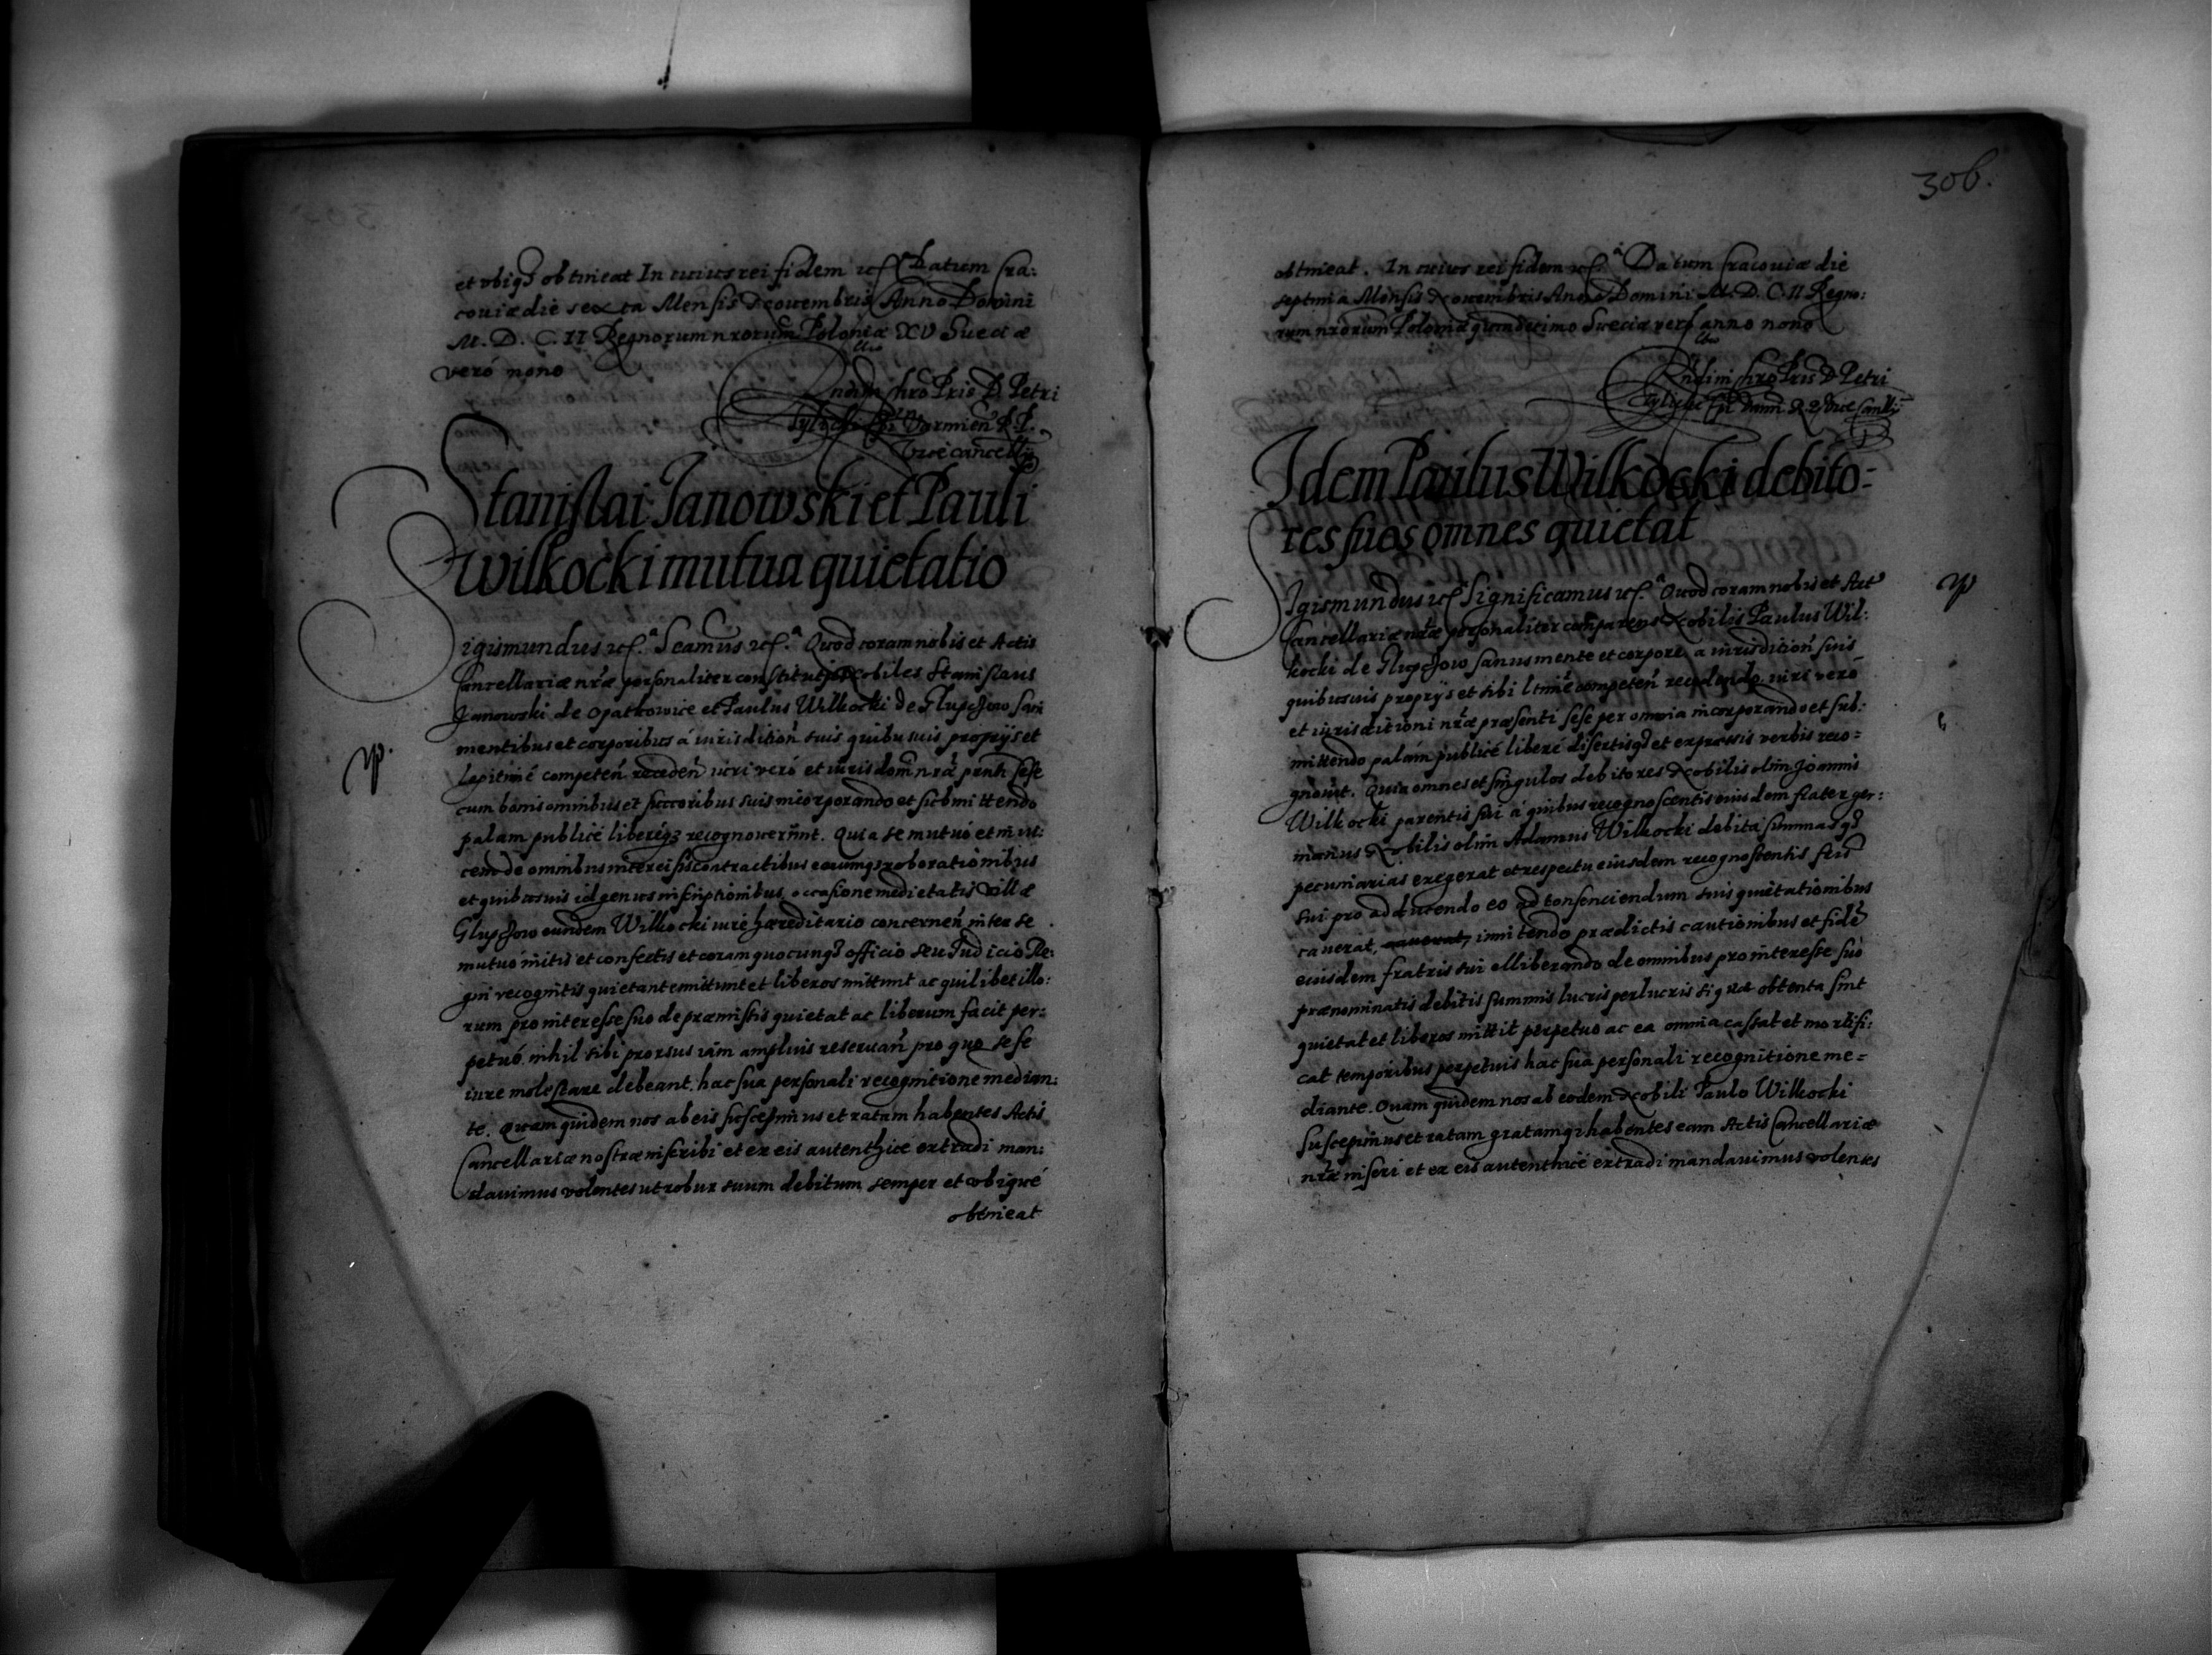 et vbiqȝ obtineat In cuius rei fidem etc Datum Cra:
couiæ die sexta Mensis Nouembris Anno Domini
M. D. C. II Regnorum nrorum Poloniæ XV Sueciæ
veró nono
Petri
Tylicki Varmień
Vice cancell
Stanislai Janowski et Pauli
Wilkocki mutua quietatio
Sigismundus etc.ᵃ Quod coram nobis et Actis
Cancellariæ nræ personaliter constituti Nobiles Stanislaus
Janowski de Opatkowice et Paulus Wilkocki de Glupchow sani
mentibus et corporibus á iurisdition suis quibusuis proprijs et
legitimé competeń receden iuri veró et iurisdom nræ pnti sese
cum bonis omnibus et succoribus suis incorporando et submittendo
palam publicé liberéqȝ recognouerunt. Quia se mutuó et in vi:
cem de omnibus inter eisis contractibus eorumqȝ roborationibus
et quibusuis id genus inscriptionibus occasione medietatis villæ
Glupchow eundem Wilkocki iure hæreditario concerneń inter se
mutuó initis et confectis et coram quocunqȝ officio seu Judicio Re:
gni recognitis quietant emittunt et liberos mittunt ac quilibet illo:
rum pro interesse suo de præmissis quietat ac liberum facit per:
petuó. nihil sibi prorsus iam amplius reseruań pro quo sese
iure molestare debeant. hac sua personali recognitione median:
te. Quam quidem nos ab eis suscepimus et ratam habentes Actis
Cancellariæ nostræ inscribi et ex eis autenthicé extradi man:
dauimus volentes ut robur suum debitum semper et vbique
obtineat
306.
obtineat. In cuius rei fidem etc.ᵃ Datum Cracouiæ die
septima Mensis Nouembris Anno Domini M. D. C. II Regno:
rum nrorum Poloniæ quindecimo Sueciæ vero anno nono
Petri
Tylicki
Idem Paulus Wilkocki debito-
res suos omnes quietat
Sigismundus etc Significamus etc.ᵃ Quod coram nobis et Act
Cancellariæ nræ personaliter comparens Nobilis Paulus Wil:
kocki de Glupchow sanus mente et corpore a iurisdition suis
quibusuis proprijs et sibi ltime competeń recedendo iuri vero
et iurisditioni nræ præsenti sese per omnia incorporando et sub:
mittendo palám publicé liberé disertisqȝ et expressis verbis reco=
gnouit. Quia omnes et singulos debitores Nobilis olim Joannis
Wilkocki parentis sui á quibus recognoscentis eiusdem frater ger:
manus Nobilis olim Adamus Wilkocki debita summasqȝ
pecuniarias exegerat et respectu eiusdem recognoscentis fris
sui pro adducendo eo ad consenciendum suis quietationibus
cauerat, cauerat, innitendo prædictis cautionibus et fide
eiusdem fratris sui elliberando de omnibus pro interesse suo
prænominatis debitis summis lucris perlucris si quæ obtenta sint
quietat et liberos mittit perpetuo ac ea omnia cassat et mortifi:
cat temporibus perpetuis hac sua personali recognitione me=
diante. Quam quidem nos ab eodem Nobili Paulo Wilkocki
suscepimus et ratam gratamqȝ habentes eam Actis Cancellariæ
nræ inseri et ex eis autenthicé extradi mandauimus volentes